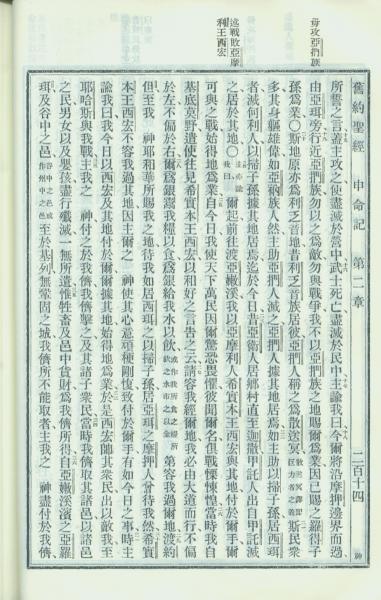 毋攻亞捫族
述戰敗亞摩
利王西宏
舊約聖經 申命記 第二章 二百十四
所誓之言蓋主攻之使盡滅於營中武士死亡盡滅於民中主諭我曰今爾將沿摩押邊界而過
由亞珥旁行近亞捫族勿以之為敵勿與戰爭我不以亞捫族之地賜爾為業因已賜之羅得子
孫為業〇斯地原亦為利乏音地昔利乏音族居彼亞捫人稱之為散送冥散送冥譯即巨力者之義斯民衆
多其身軀雄偉如亞衲族人然主助亞捫人滅之亞捫人據其地居焉如主助以掃子孫居西珥
者滅何利人以掃子孫據其地居焉迄於今日昔亞衛人居鄉村直至迦薩甲託人出自甲託滅
之居於其地〇主亦諭我曰爾起前往渡亞嫩溪我以亞摩利人希實本王西宏與其地付於爾手爾
可與之戰始得地為業自今日我使天下萬民因爾驚恐畏懼彼聞爾名俱戰慄惶當時我自
基底莫野遣使往見希實本王西宏以和好之言告之云請容我經爾地我必由大道而行不偏
於左不偏於右爾為銀鬻我糧以食為銀給我水以飲或作我所食之糧所飲之水市之以金第容我過爾地渡約
但至我 神耶和華所賜我之地待我如居西珥之以掃子孫居亞珥之摩押人待我然希實
本王西宏不容我過其地因主爾之 神使其心意頑梗剛愎致付於爾手有如今日之事時主
諭我曰我今日以西宏及其地付於爾爾據其地始得地為業於是西宏帥其衆民出以敵我至
耶哈斯與我戰主我之 神付之於我儕我儕擊之及其諸子衆民當時我儕取其諸邑以諸邑
之民男女以及嬰孩盡行殲滅一無所遺惟牲畜及邑中貨財為我儕所得自亞嫩溪濱之亞羅
珥及谷中之邑谷中之邑或作州中之邑至於基列無鞏固之城我儕所不能取者主我之 神盡付於我儕